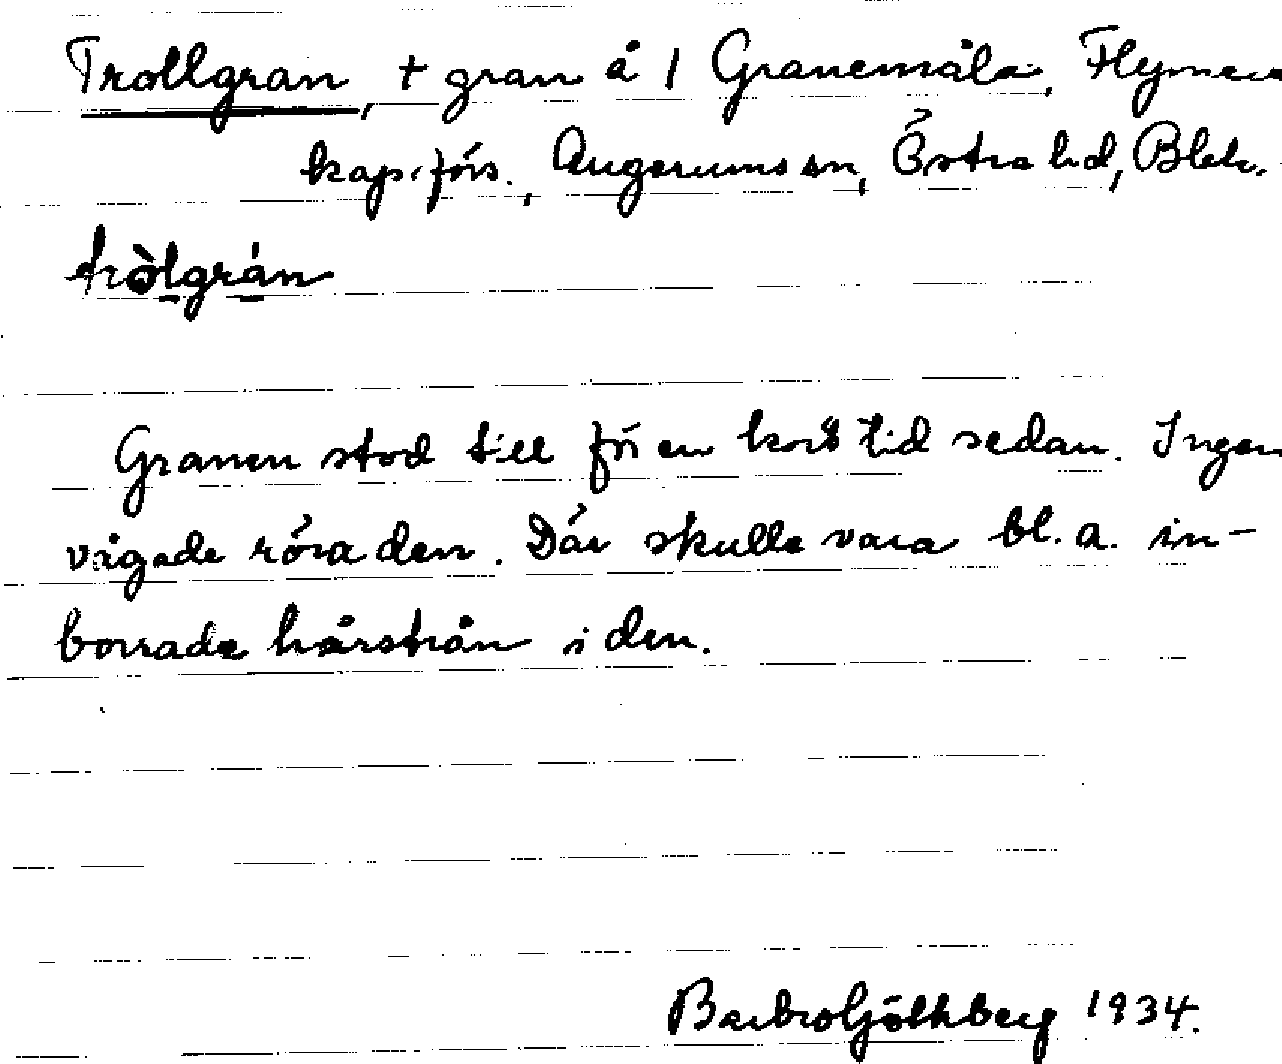 Trollgran, + gran å 1 Granemåla, Flymens
kap.förs., Augerums sn, Östra hd, Blek.
tròlgrán
Granen stod till för en kort tid sedan. Ingen
vågade röra den. Där skulle vara bl.a. in-
borrade hårstrån i den.
Barbro Göthberg 1934.